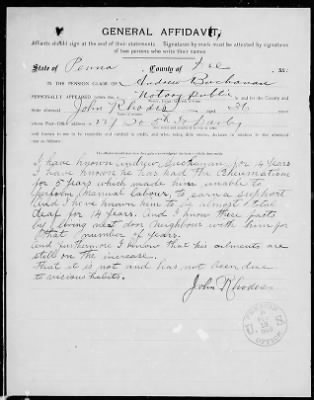 GENERAL AFFIDAVIT.
Affiants should sign at the end of their statements. Signatures by mark must be attested by signatures
of two persons who write their names
State of Penna, County of Del, SS:
IN THE PENSION CLAIM OF Andrew Buchanan
PERSONALLY APPEARED before me, a Notary Public in and for the County and
State aforesaid John Rhodes aged 36 years
whose Post-Office address is So 5th St Darby
I have known Andrew Buchanan for 14 Years
I have known he has had the Rheumatism
for 5 years which made him unable to
perform manual labour, to earn a support
And I have known him to be almost total
deaf for 14 years. And I know these facts
by living next door neighbour with him for
that number of years.
And furthermore I know that his ailments are
still on the increase.
That it is not and has not been due
to vicious habits.
John Rhodes
OFFICE